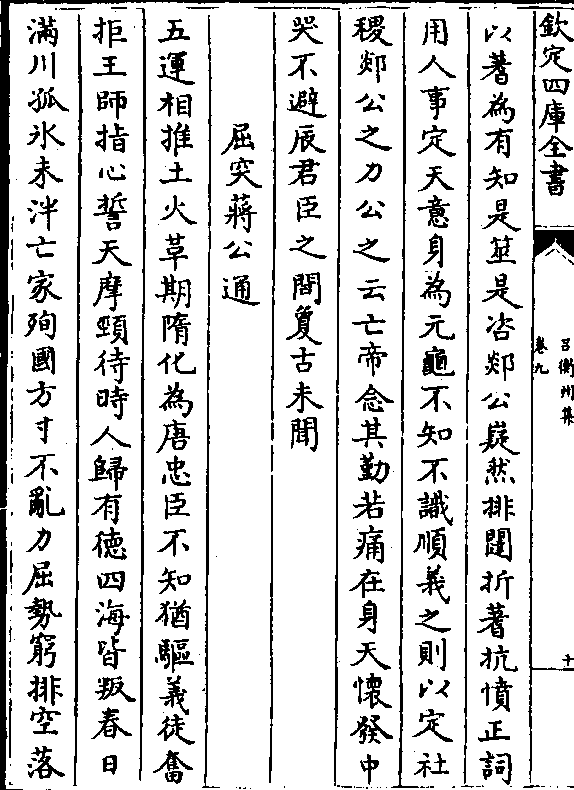 欽定四庫全書
呂衡州集
卷九
十
以蓍為有知是筮是咨郯公嶷然排闥折蓍抗憤正詞
用人事定天意身為元龜不知不識順義之則以定社
稷郯公之力公之云亡帝念其勤若痛在身天懷發中
哭不避辰君臣之間敻古未聞
屈突蔣公通
五運相推土火革期隋化為唐忠臣不知猶驅義徒奮
拒王師指心誓天摩頸待時人歸有德四海皆叛春日
滿川孤氷未泮亡家殉國方寸不亂力屈勢窮排空落